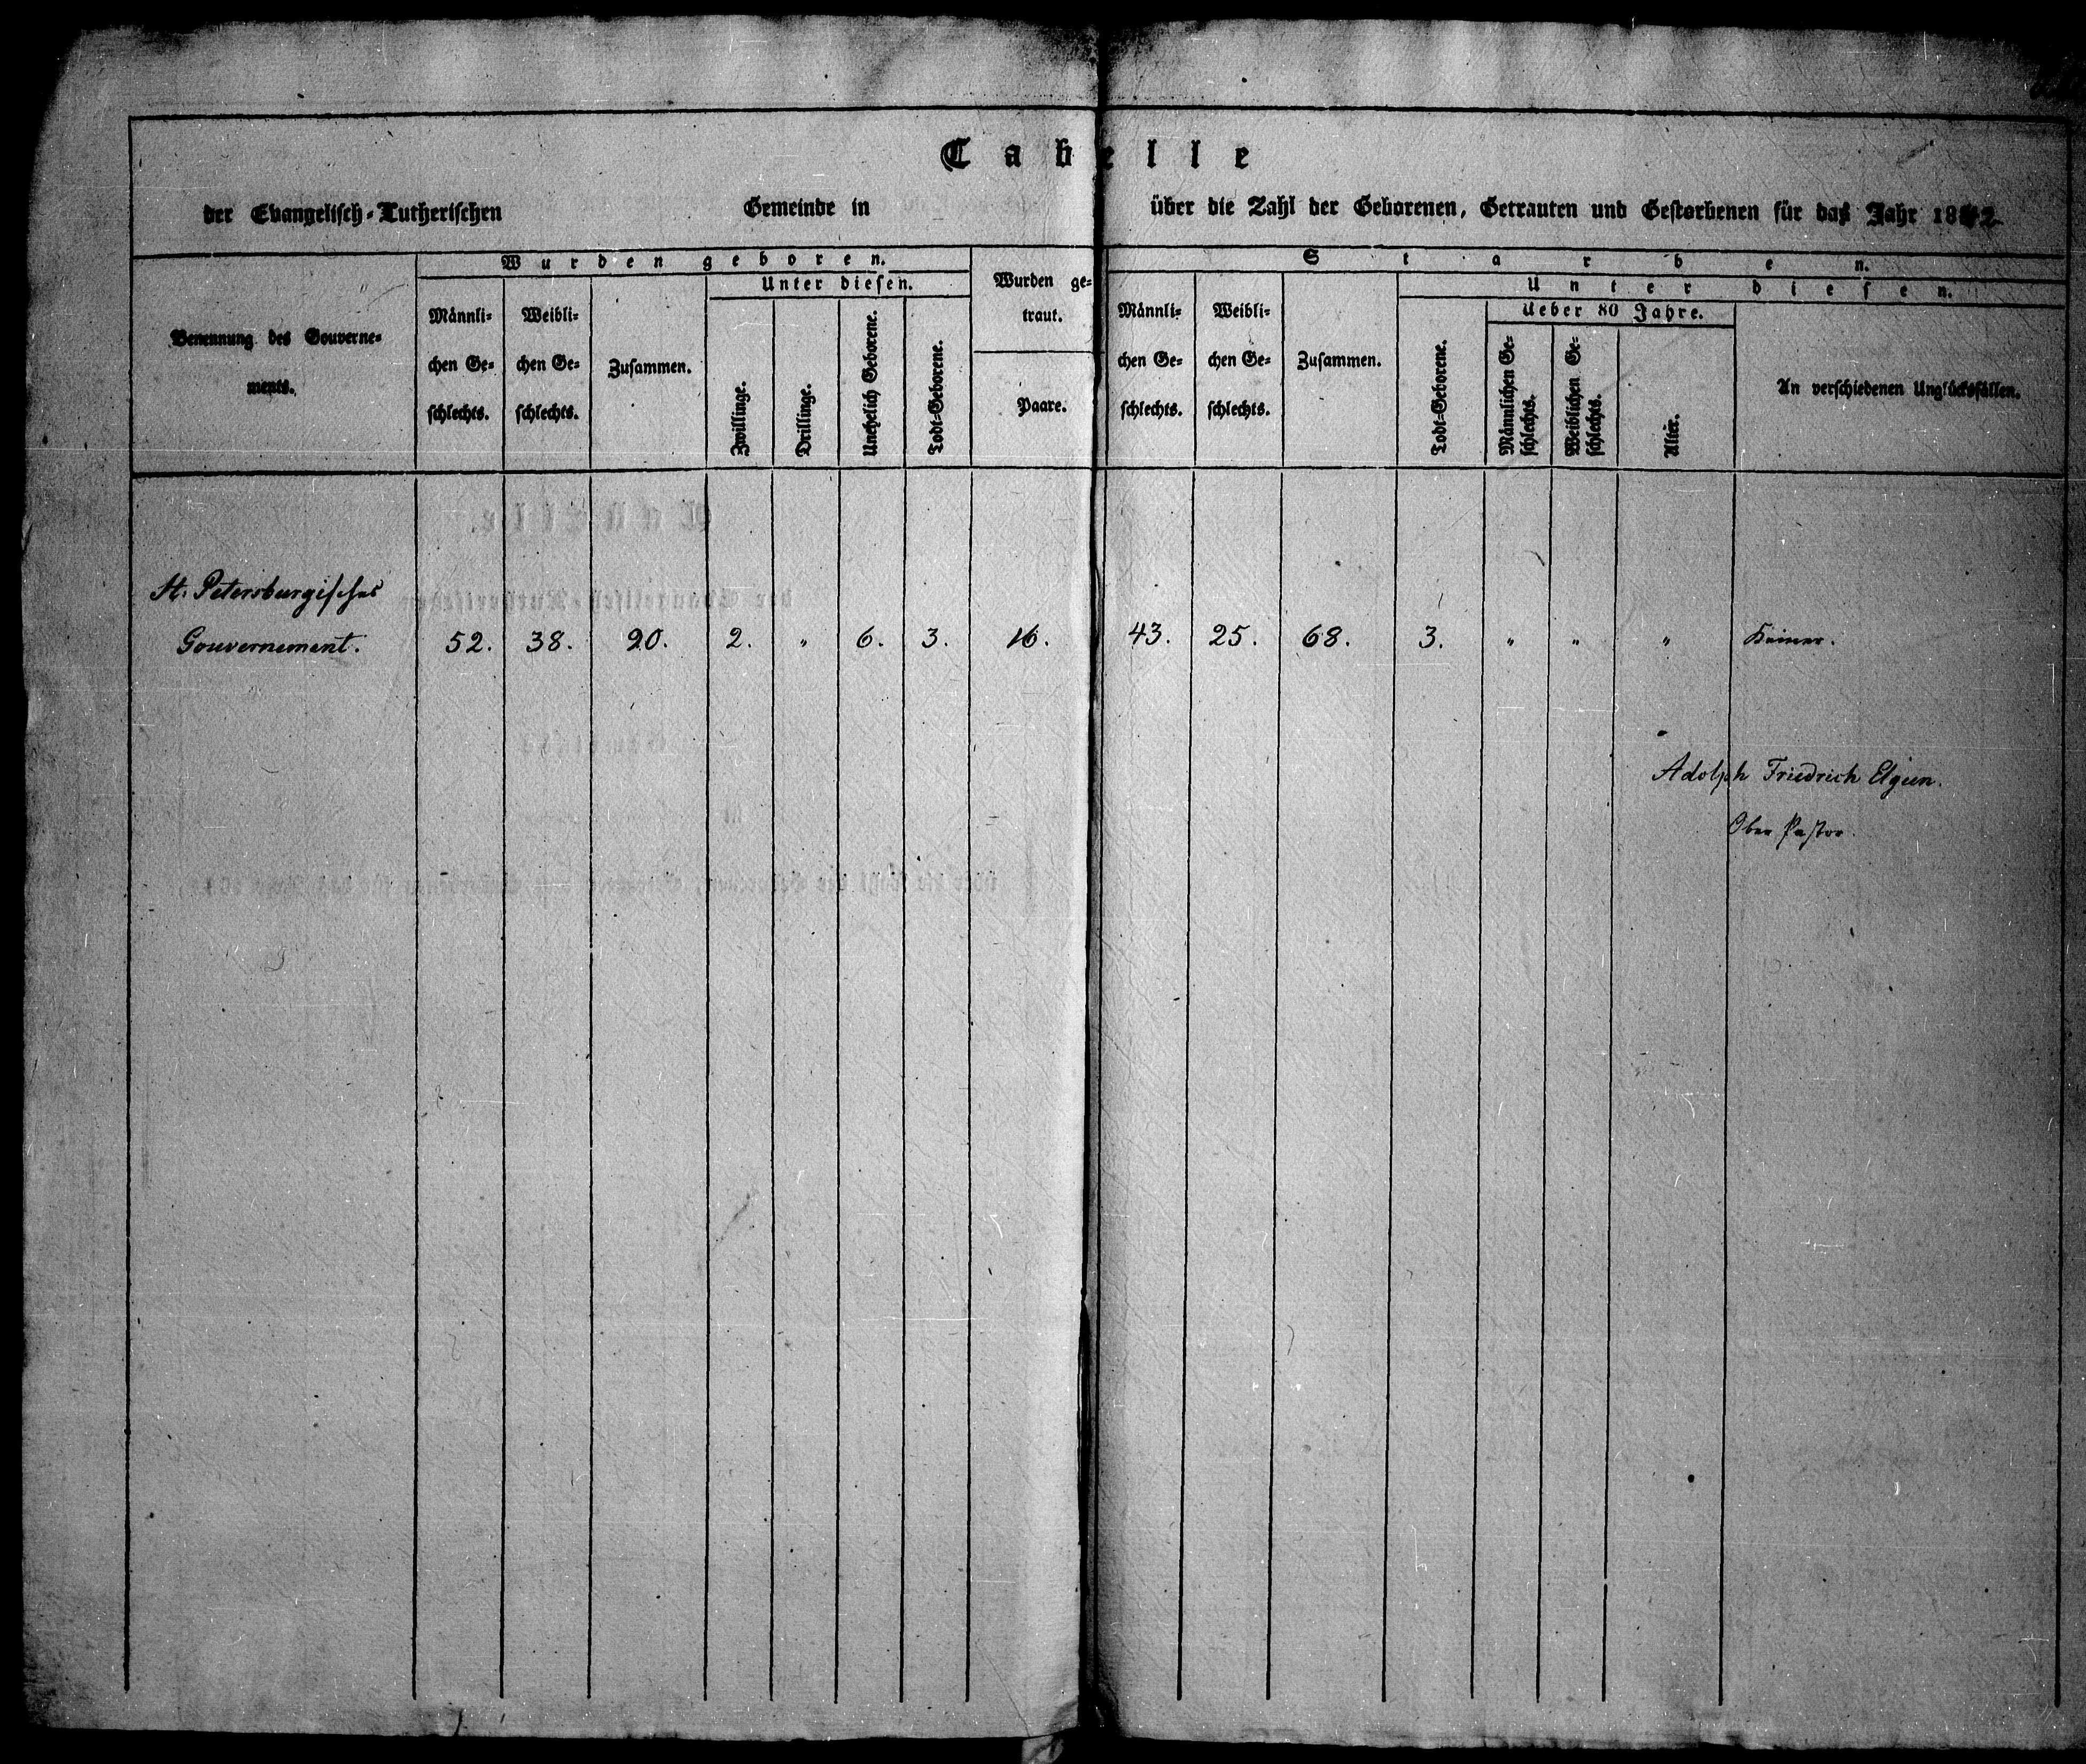 Tabelle
der Evangelisch-Lutherischen Gemeinde in über die Zahl der Geborenen, Getrauten und Gestorbenen für das Jahr 1842
Wurden geboren. Starben.
Unter diesen. Unter diesen.
Ueber 80 Jahre.
Benennung des Gouverne-
ments.
Männli-
chen Ge-
schlechts.
Weibli-
chen Ge-
schlechts.
Zusammen.
Zwillinge.
Drillinge.
Unehelich Geborene.
Todt-Geborene.
Wurden ge-
traut.
Paare.
Männli-
chen Ge-
schlechts.
Weibli-
chen Ge-
schlechts.
Zusammen.
Todt-Geborene.
Männlichen Ge-
schlechts.
Weiblichen Ge-
schlechts.
Alter.
An verschiedenen Unglücksfällen.
St. Petersburgisches
Gouvernement. 52. 38. 90. 2. " 6. 3. 16. 43. 25. 68. 3. " " " Keiner.
Adolph Friedrich Elgeen.
Ober Pastor.